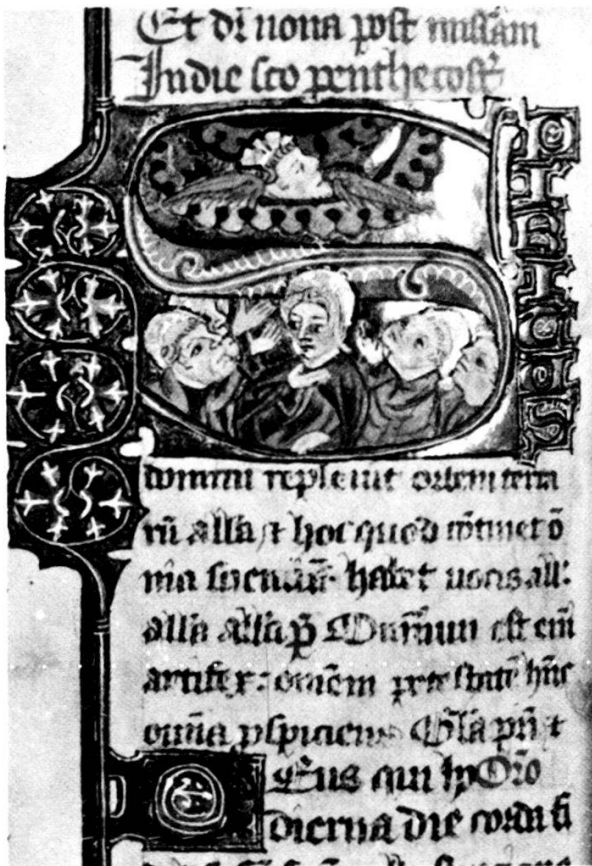 Et dr nona post missam
In die sco penthecost
SPIRITUS
domini repleuit orbem terra
rū alla ⁊ hoc quod ꝯtinet ō
nia scienciā habet uocis all:
alla alla p̄ Omniū est em̄
artifex: omēm ptestatē hn̄s
omīa pspiciens Gla pri ⁊
DEus qui ho Oro
dierna die corda fi